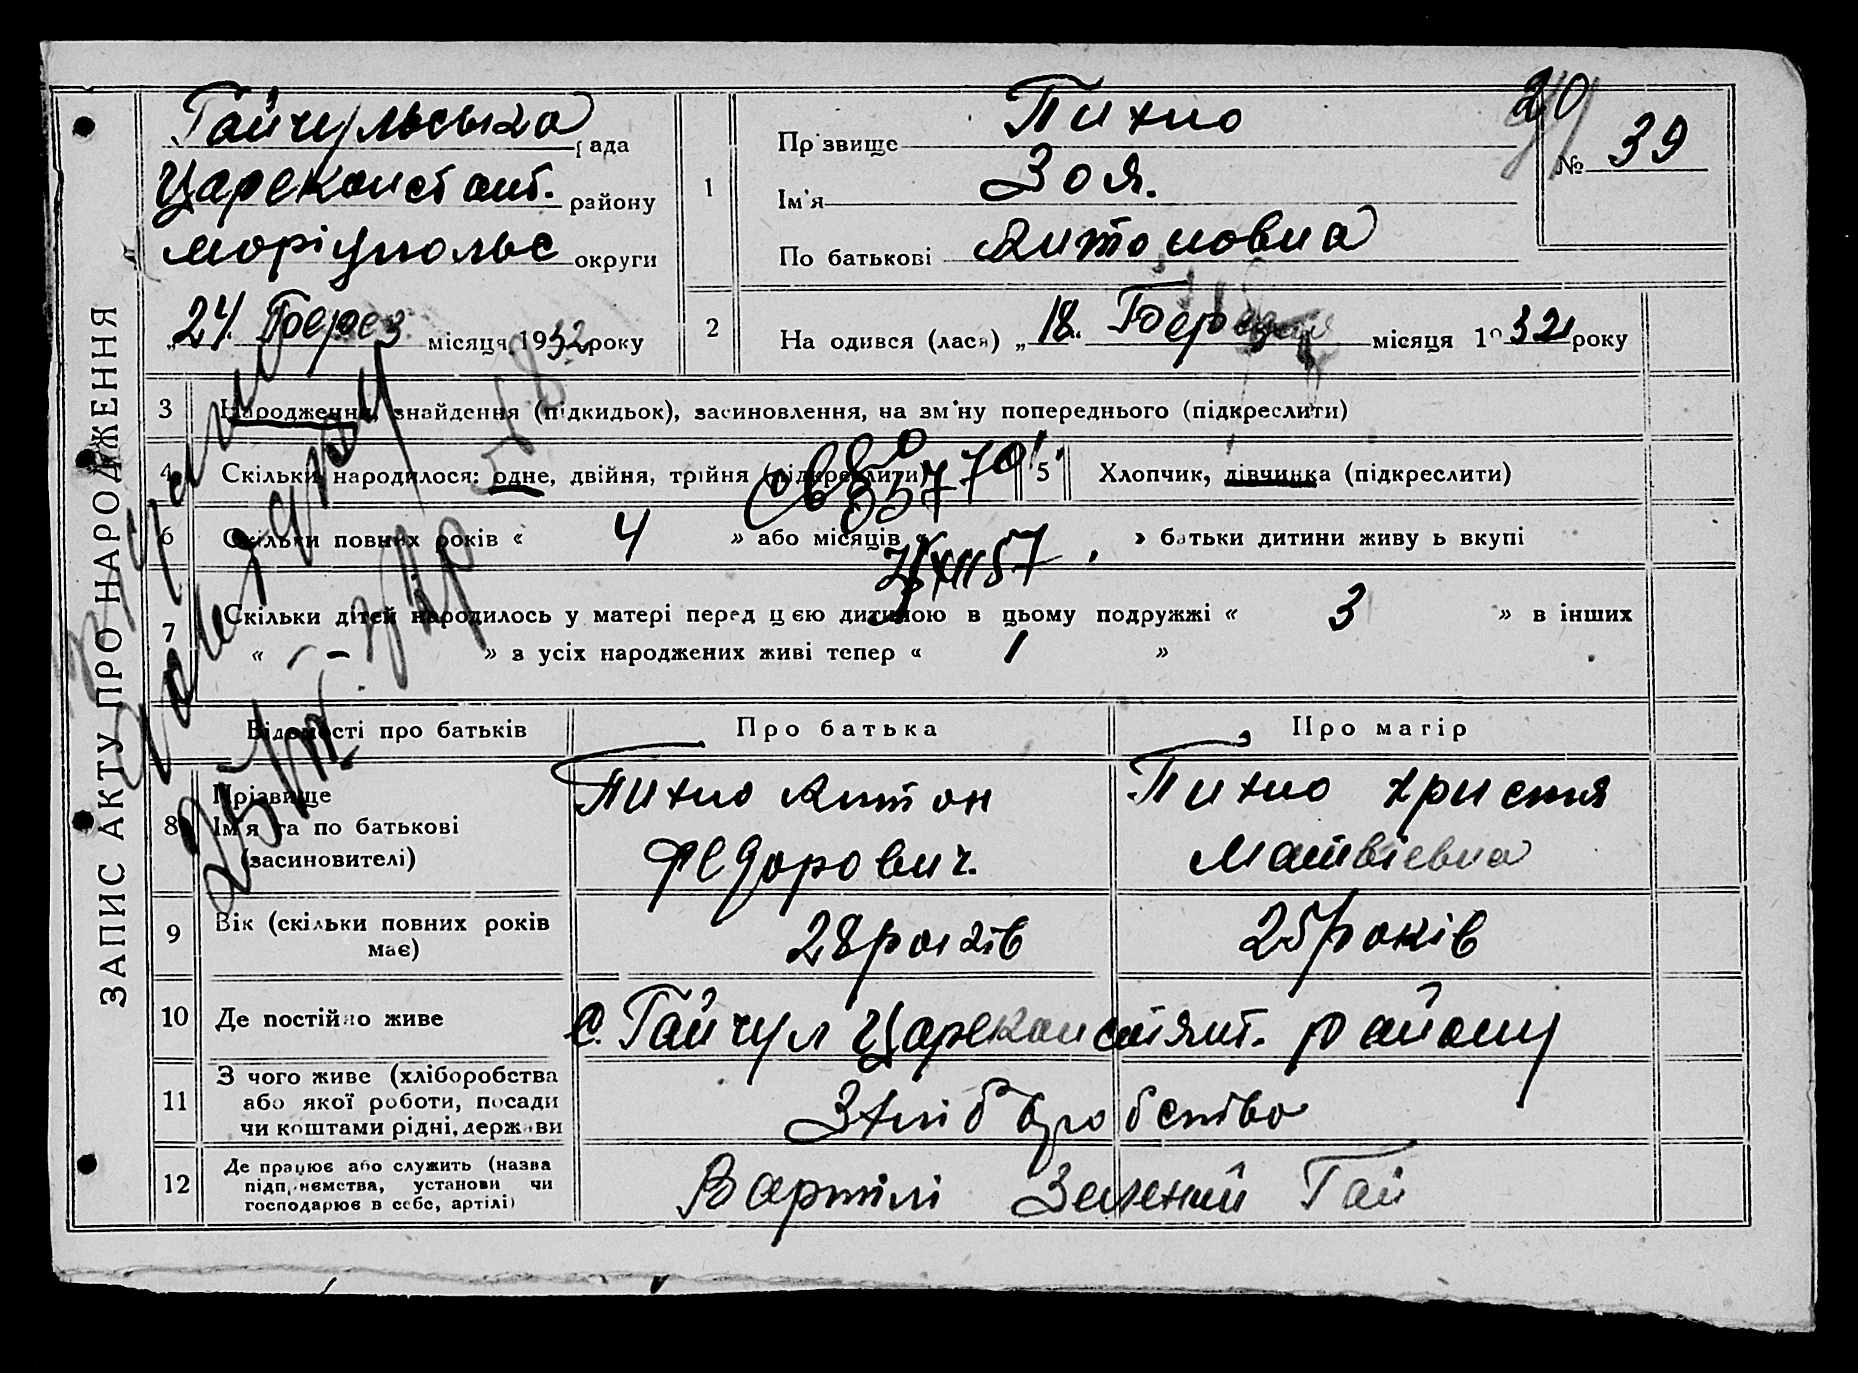 ЗАПИС АКТУ ПРО НАРОДЖЕННЯ
Гайчульська рада
Цареконстант. району
моріупольс округи
„24" Берез місяця 1932 року
1
Прізвище Пихно
Ім'я Зоя.
По батькові Антоновна
20
№ 39
2
На одився (лася) „18" Березня місяця 19 32 року
3 Народження, знайдення (підкидьок), засиновлення, на зміну попереднього (підкреслити)
4 Скільки народилося: одне, двійня, трійня (підкреслити)
5 Хлопчик, дівчинка (підкреслити)
6 Скільки повних років « 4 » або місяців « » батьки дитини живуть вкупі
7 Скільки дітей народилось у матері перед цією дитиною в цьому подружжі « 3 » в інших
« - » з усіх народжених живі тепер « 1 »
Відомості про батьків Про батька Про матір
8 Прізвище
Ім'я та по батькові
(засиновителі)
Пихно Антон
Федорович.
Пихно Христя
Матвієвна
9 Вік (скільки повних років
має)
28 років
25 років
10 Де постійно живе
с. Гайчул Цареконстянт. району
11 З чого живе (хліборобства
або якої роботи, посади
чи коштами рідні, держави
З хліборобства
12 Де працює або служить (назва
підприємства, установи чи
господарює в себе, артілі)
В артілі Зелений Гай